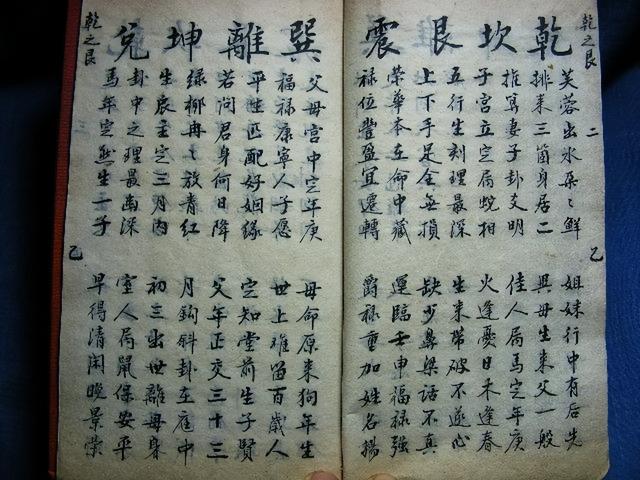 乾之艮 二 乙
乾坎艮震
芙蓉出水朵々鮮 姐妹行中有后先
排来三箇身居二 與母生来父一般
推寫妻子卦爻明 佳人局馬定年庚
子宮立定局蛻相 火逢憂日禾逢春
五行生刻理最深 生来帶破不遂心
上下手足全無損 缺少鼻梁話不真
榮華本在命中藏 運臨壬申福禄强
禄位豐盈宜遷轉 爵禄重加姓名揚
巽離坤兌
父母宮中定年庚 母命原来狗年生
福禄康寧人子愿 世上难留百歲人
平生匹配好姻緣 定知堂前生子賢
若問君身何日降 父年正交三十三
绿柳冉々放青紅 月鈎斜卦在庭中
生辰定三月内 初三出世離母身
卦中之理最幽深 室人局鼠保安平
馬年定然生一子 早得清闲晚景荣
乾之艮 乙